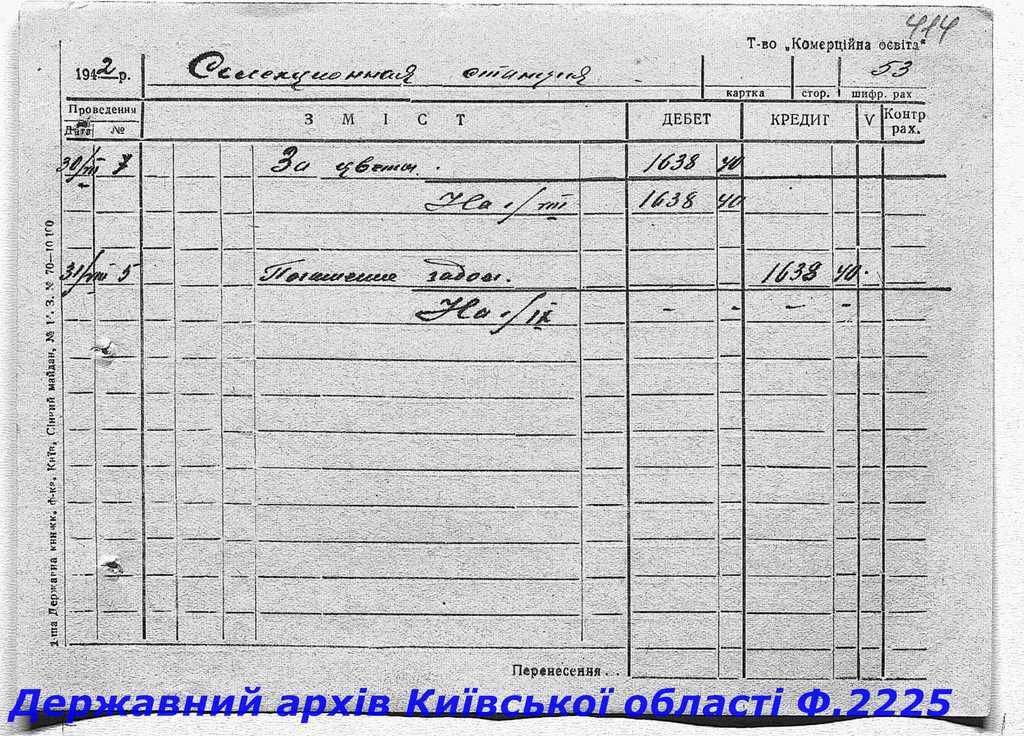 414
Т-во „Комерційна освіта"
1942 р. Селекционная станция 53
картка стор. шифр. рах
Проведення ЗМІСТ ДЕБЕТ КРЕДИТ V Контр рах.
Дата №
30/VIII 7 За цветы. 1638 40
На 1/VIII 1638 40
31/VIII 5 Погашение задол. 1638 40
На 1/IX - - - -
Перенесення...
1-ша Державна книжк. ф-ка. Київ, Сінний майдан, № 70—10 100
Державний архів Київської області Ф.2225